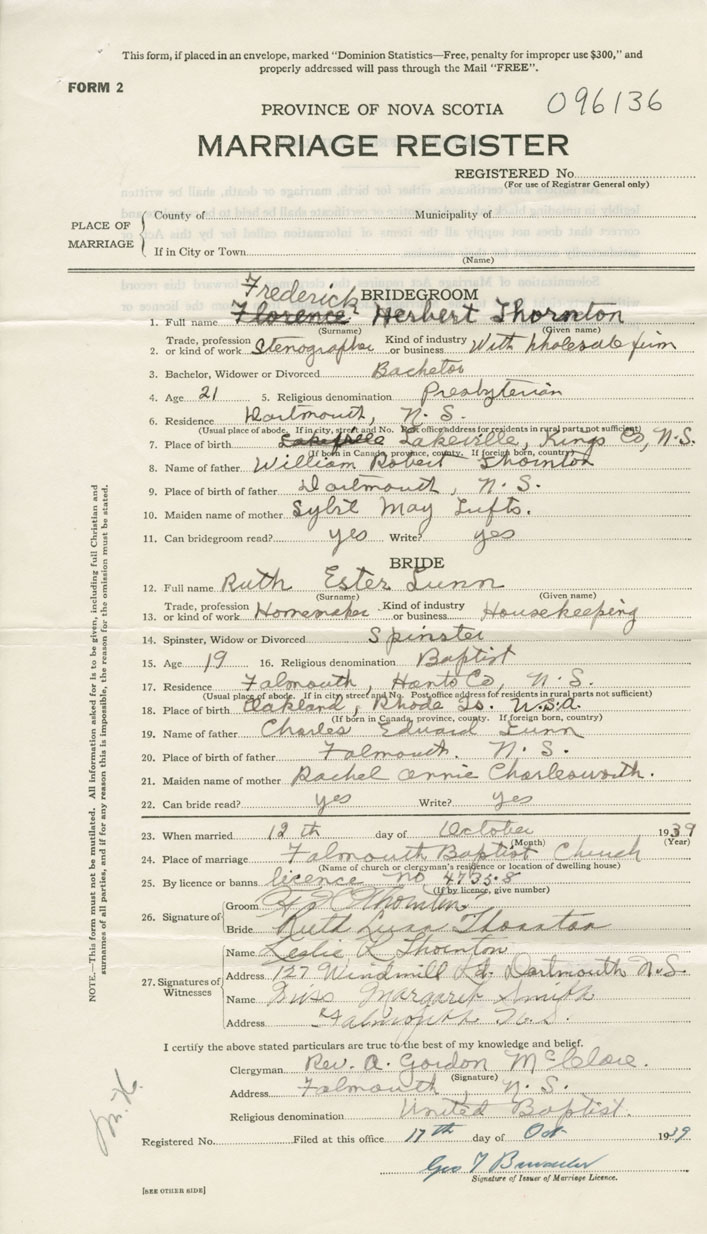 This form, if placed in an envelope, marked "Dominion Statistics—Free, penalty for improper use $300," and
properly addressed will pass through the Mail "FREE".
FORM 2
PROVINCE OF NOVA SCOTIA 096136
MARRIAGE REGISTER
REGISTERED No.
(For use of Registrar General only)
PLACE OF MARRIAGE
County of Municipality of
If in City or Town
(Name)
Frederick BRIDEGROOM
1. Full name Florence Herbert Thornton
(Surname) (Given name)
2. Trade, profession or kind of work Stenographer Kind of industry or business With wholesale firm
3. Bachelor, Widower or Divorced Bachelor
4. Age 21 5. Religious denomination Presbyterian
6. Residence Dartmouth, N.S.
(Usual place of abode. If in city, street and No. Post office address for residents in rural parts not sufficient)
7. Place of birth Lakeville Lakeville, Kings Co, N.S.
(If born in Canada, province, county. If foreign born, country)
8. Name of father William Robert Thornton
9. Place of birth of father Dartmouth, N.S.
10. Maiden name of mother Sybil May Tufts.
11. Can bridegroom read? yes Write? yes
BRIDE
12. Full name Ruth Ester Lunn
(Surname) (Given name)
13. Trade, profession or kind of work Homemaker Kind of industry or business Housekeeping
14. Spinster, Widow or Divorced Spinster
15. Age 19 16. Religious denomination Baptist
17. Residence Falmouth, Hants Co, N.S.
(Usual place of abode. If in city, street and No. Post office address for residents in rural parts not sufficient)
18. Place of birth Oakland, Rhode Is. U.S.A.
(If born in Canada, province, county. If foreign born, country)
19. Name of father Charles Edward Lunn
20. Place of birth of father Falmouth. N.S.
21. Maiden name of mother Rachel Annie Charlesworth.
22. Can bride read? yes Write? yes
23. When married 12th day of October 1939
(Month) (Year)
24. Place of marriage Falmouth Baptist Church
(Name of church or clergyman's residence or location of dwelling house)
25. By licence or banns licence no 47358
(If by licence, give number)
26. Signature of
Groom F H Thornton
Bride Ruth Lunn Thornton
27. Signatures of Witnesses
Name Leslie R Thornton
Address 127 Windmill Rd. Dartmouth N.S.
Name Miss Margaret Smith
Address Falmouth N.S.
I certify the above stated particulars are true to the best of my knowledge and belief.
Clergyman Rev. A. Gordon McClare.
(Signature)
Address Falmouth, N.S.
Religious denomination United Baptist.
Registered No. Filed at this office 17th day of Oct 1939
Geo
Signature of Issuer of Marriage Licence.
[SEE OTHER SIDE]
NOTE.—This form must not be mutilated. All information asked for is to be given, including full Christian and
surnames of all parties, and if for any reason this is impossible, the reason for the omission must be stated.